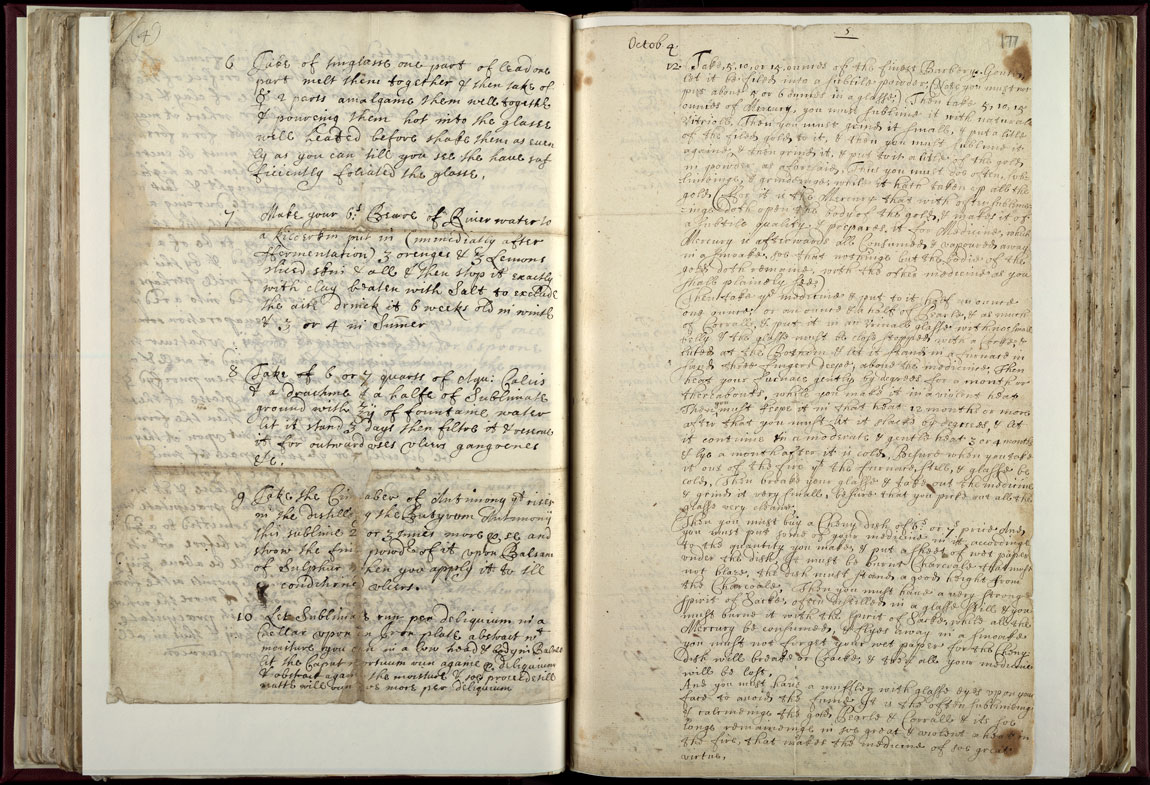 4
6 Take of tinglasse one part of lead one
part melt them together & then take of
☿ 2 parts amalgame them well togethe
& pouering them hot into the glasse
well heated before shake them as even
ly as you can till you see the have suf
ficiently foliated the glasse.
7 Make your 6s Beare of River water to
a Kilderkin put in (immediatly after
fermentation) 3 orenges & 3 Lemons
sliced skin & all & then stop it exactly
with clay beaten with Salt to exclude
the aire drink it 6 weeks old in wint
& 3 or 4 in Sumer
8 Take of 6 or 7 quarts of Aqu: Calcis
& a drachme & a halfe of Sublimate
ground with of fountaine water
let it stand 3 days then filtre it & reserve
it for outward uses ulcers gangreenes
&c.
9 Take the Cin aber of Antimony yt rises
in the distille g the Butyrum Antimony
this sublime 2 or 3 times more and
strow the fin powder of it upon Balsam
of Sulphur hen you apply it to ill
conditione ulcers.
10 Let Sublimate run per deliquium in a
cellar upon a iron plate abstract
moisture in a low head & body in Balneo
let the Caput mortuum run againe deliquium
& abstract again the moisture & soe proceed till
more per deliquium
5
177
Octob 4.
12. Take, 5, 10, or 15. ounces of the finest Barbery Gould,
let it be filed into a subtile powder. (Note you must not
put about 5 or 6 ounces in a glasse) Then take 5, 10, 15
ounces of Mercury, you must sublime it with naturale
Vitrioll. Then you must grind it smale, & put a litle
of the filed gold to it, & then you must sublime it
againe, & then grind it, & put to it a litle of the gold
in powder as aforsaid. Thus you must doe often, sub
limeinge, & grindeinge while it hath taken up all the
gold. (For it is the Mercury that with often sublime
inge doth open the body of the gold, & makes it of
a subtile quality, & prepares it for Medicine, which
Mercury is afterwards all Consumed, & vapoured away
in a smoake, soe that nothinge but the bodie of the
gold doth remaine, with the other medicine as you
shall plainely see)
Then take ye medicine & put to it half an ounce
one ounce, or an ounce & a half of Pearle, & as much
of Corrall, & put it in an Urinall glasse with noe smal
belly, & the glasse must be close stopped with a Cover
luted at the Bottom, & let it stand in a furnace in
sand three fingers deepe, above the medicine. Then
heat your furnace gently by degrees for a month or
thereabouts, while you make it in a violent heat
Then must keepe it in that heat 12 months or more
after that you must let it slacke by degrees, & let
it continue in a moderate & gentle heat 3 or 4 months
& lye a month after it is cold. Before when you take
it out of the fire yt the furnace, still, & glasse be
cold. Then breake your glasse & take out the medicine
& grind it very smale, before that you pick out all the
glasse very cleane.
Then you must buy a Cheny dish of 6s or 7s price And
you must put some of your medicine in it, accordinge
to the quantity you make, & put a sheet of wet paper
under the dish. It must be burnt Charcoale that must
not blaze, the dish must stand a good height from
the Charcoale. Then you must have a very stronge
Spirit of Sacke, often distilled in a glasse still, & you
must burne it with the Spirit of Sacke, while all the
Mercury be consumed, & flyes away in a smoake
you must not forget your wet paper, for the Cheny
dish will breake or Cracke, & then all your medicine
will be lost.
And you must have a muffler with glasse eyes upon your
face to avoid the fume. It is the often sublimeing
& calcineinge the gold, Pearle & Corrall & its soe
longe remaineinge in soe great & violent a heat in
the fire, that makes the medicine of soe great
virtue.